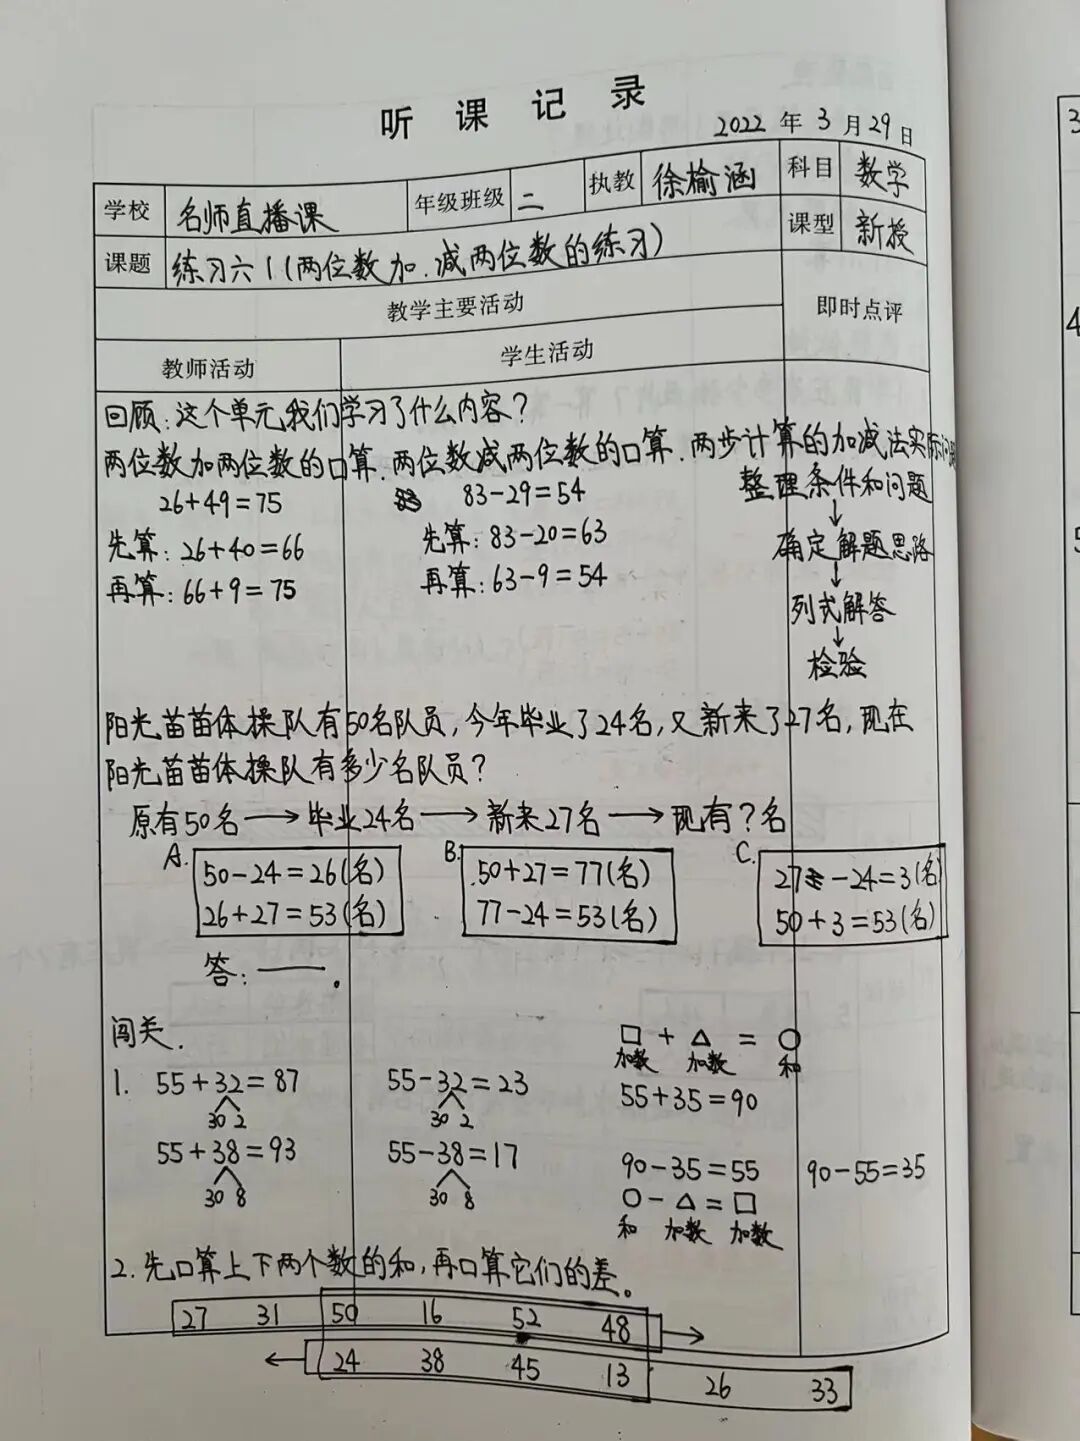 听课记录
2022年3月29日
学校 名师直播课 年级班级 二 执教 徐榆涵 科目 数学
课题 练习六1(两位数加.减两位数的练习) 课型 新授
教学主要活动 即时点评
教师活动 学生活动
回顾:这个单元我们学习了什么内容?
两位数加两位数的口算.两位数减两位数的口算.两步计算的加减法实际问题
26+49=75 83-29=54 整理条件和问题
↓
先算:26+40=66 先算:83-20=63 确定解题思路
↓
再算:66+9=75 再算:63-9=54 列式解答
↓
检验
阳光苗苗体操队有50名队员,今年毕业了24名,又新来了27名,现在
阳光苗苗体操队有多少名队员?
原有50名→毕业24名→新来27名→现有?名
A. 50-24=26(名) B. 50+27=77(名) C. 27-24=3(名)
26+27=53(名) 77-24=53(名) 50+3=53(名)
答:——。
闯关.
□+△=○
加数 加数 和
1. 55+32=87 55-32=23 55+35=90
30 2 30 2
55+38=93 55-38=17 90-35=55 90-55=35
30 8 30 8 ○-△=□
和 加数 加数
2.先口算上下两个数的和,再口算它们的差。
27 31 50 16 52 48 →
← 24 38 45 13 26 33
3
4
5